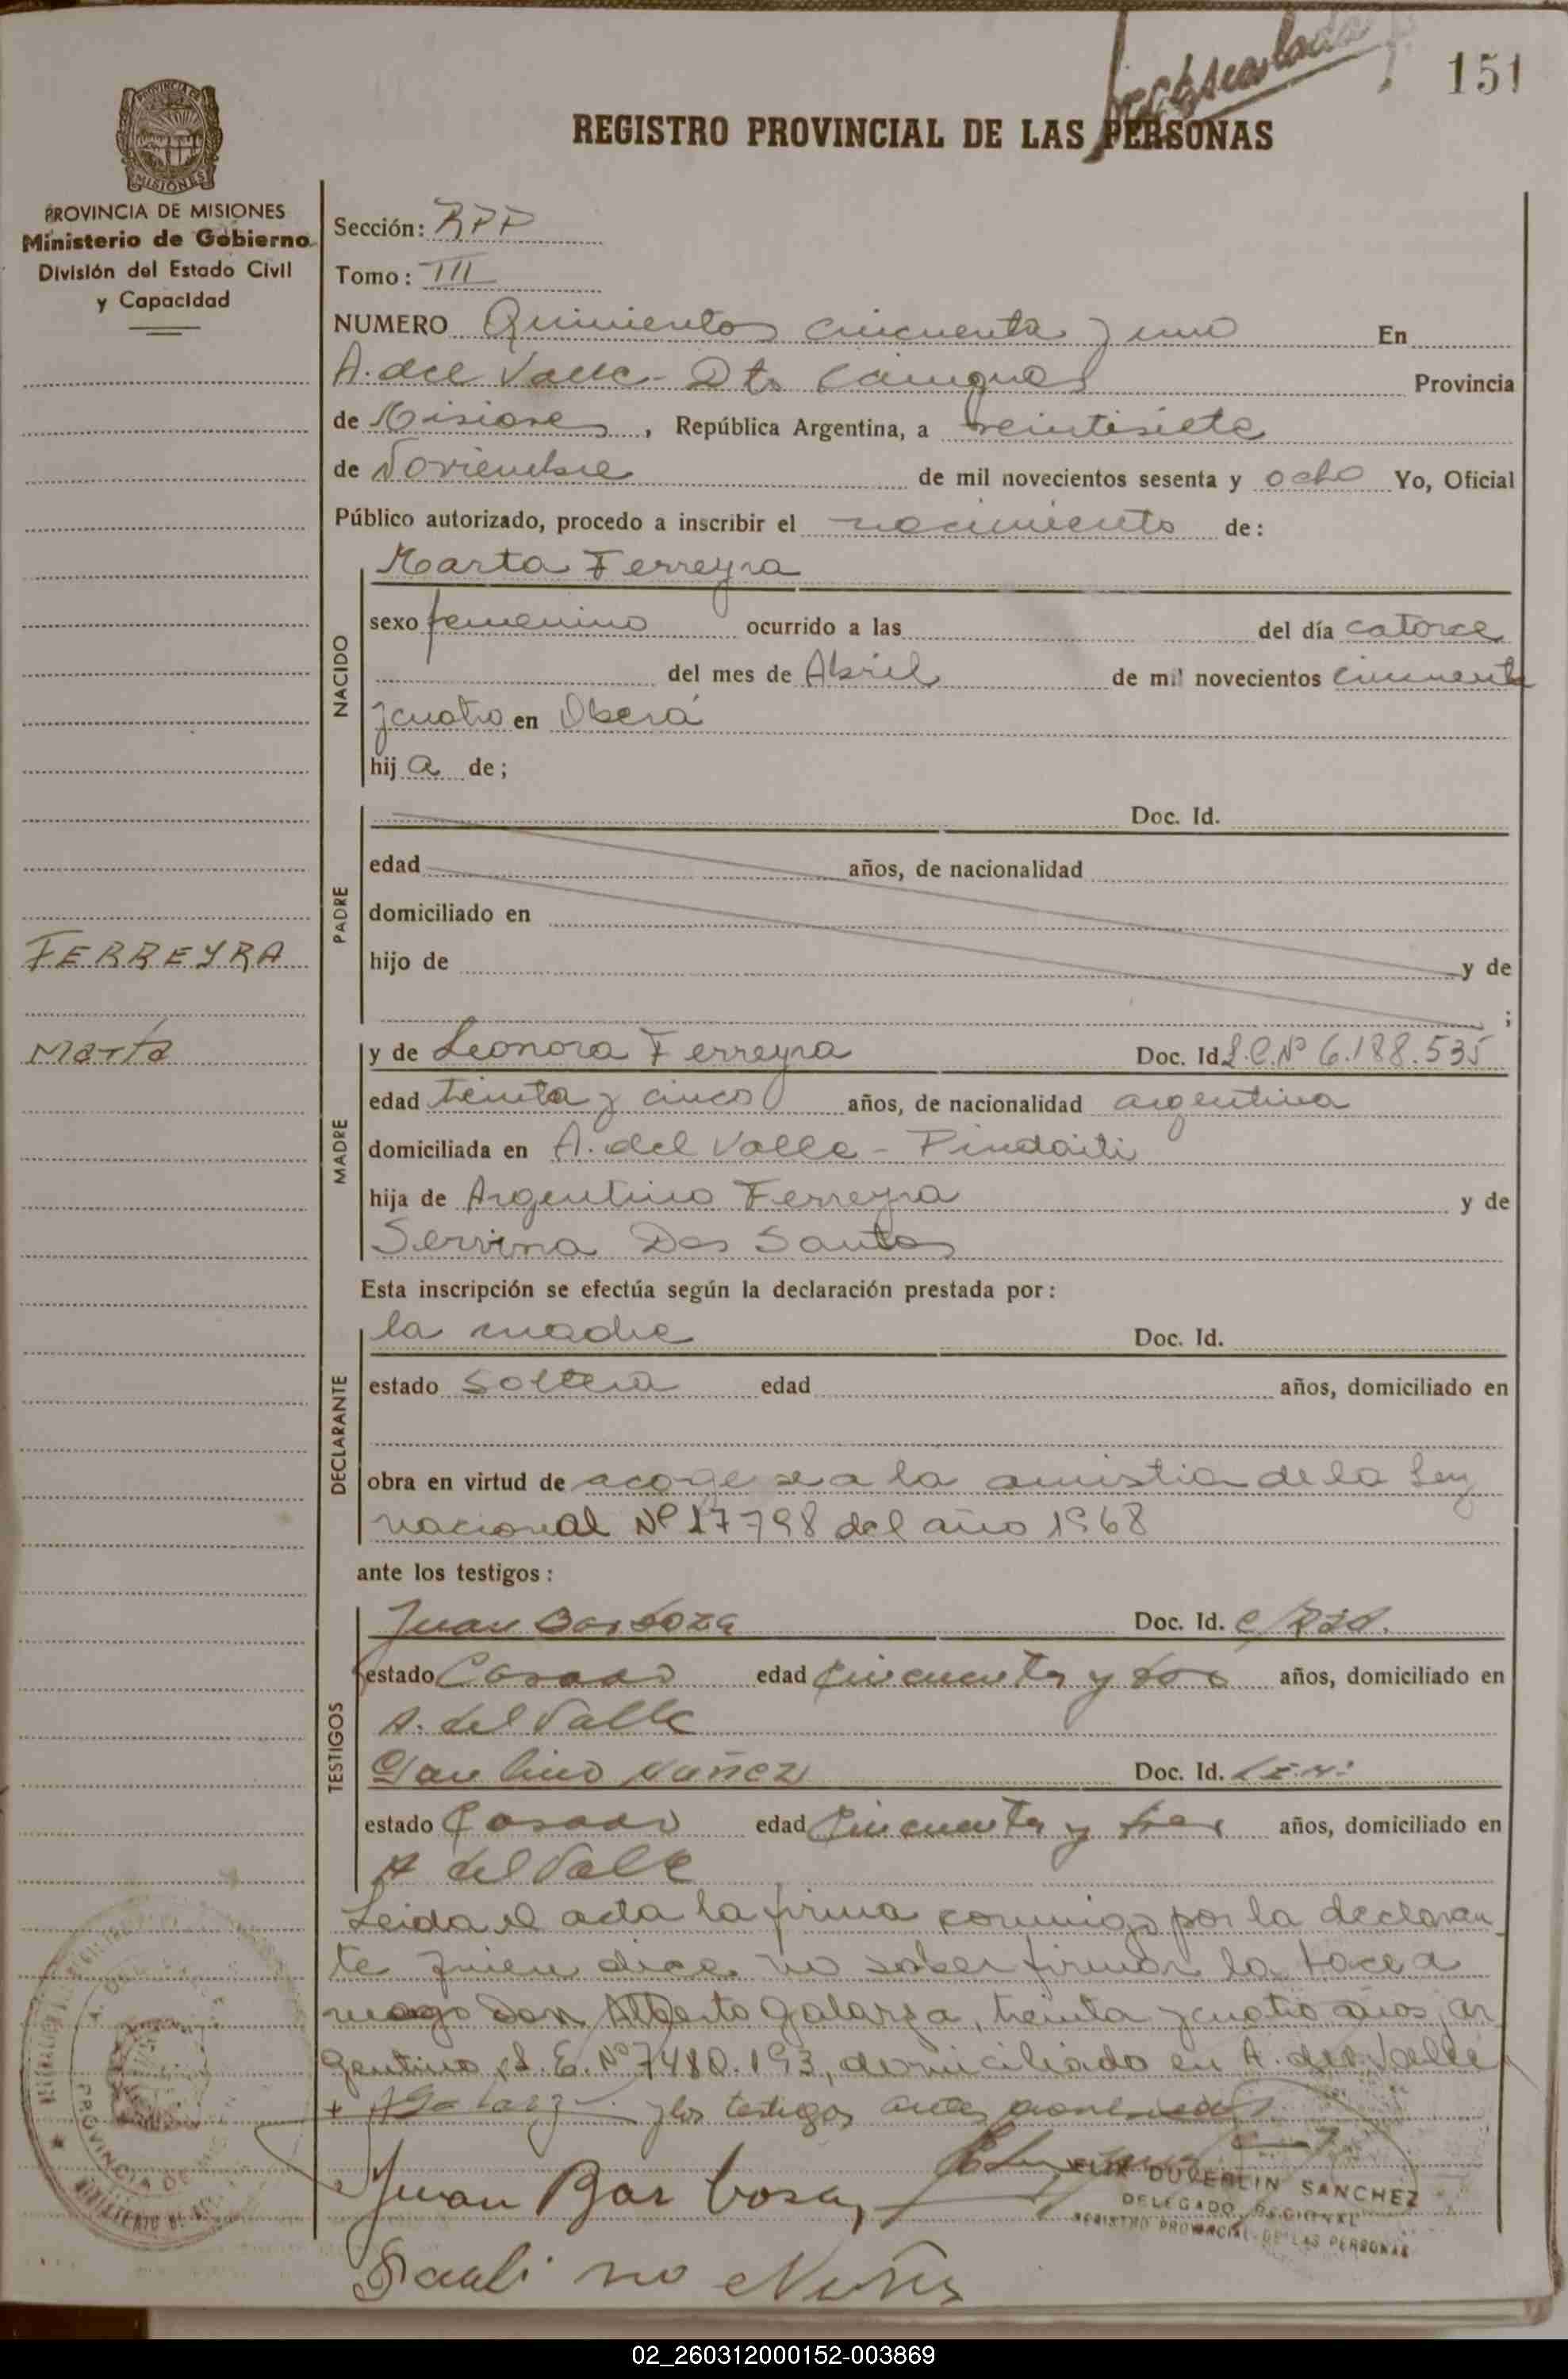 151
REGISTRO PROVINCIAL DE LAS PERSONAS
PROVINCIA DE
MISIONES
PROVINCIA DE MISIONES
Ministerio de Gobierno
División del Estado Civil
y Capacidad
Sección: RPP
Tomo: III
NUMERO Quinientos cincuenta y uno En
A. del Valle - Dto Cainguas Provincia
de Misiones, República Argentina, a veintisiete
de Noviembre de mil novecientos sesenta y ocho Yo, Oficial
Público autorizado, procedo a inscribir el nacimiento de:
NACIDO
Marta Ferreyra
sexo femenino ocurrido a las del día catorce
del mes de Abril de mil novecientos cincuenta
y cuatro en Oberá
hij a de;
PADRE
Doc. Id.
edad años, de nacionalidad
domiciliado en
hijo de y de
;
FERREYRA
Marta
MADRE
y de Leonora Ferreyra Doc. Id. L.C. Nº 6.188.535
edad treinta y cinco años, de nacionalidad argentina
domiciliada en A. del Valle - Pindaiti
hija de Argentino Ferreyra y de
Servina Dos Santos
Esta inscripción se efectúa según la declaración prestada por:
DECLARANTE
la madre Doc. Id.
estado soltera edad años, domiciliado en
obra en virtud de acogerse a la amistia de la Ley
nacional Nº 17798 del año 1968
ante los testigos:
TESTIGOS
Juan Barboza Doc. Id.
estado Casado edad cincuenta y dos años, domiciliado en
A. del Valle
Paulino Nuñez Doc. Id.
estado Casado edad cincuenta y tres años, domiciliado en
A del Valle
Leida el acta la firma conmigo por la declaran
te quien dice no saber firmar la hace a
ruego Don Alberto Galarza, treinta y cuatro años, ar
gentino, L.E. Nº 7480.193, domiciliado en A. del Valle
y los testigos
Juan Barboza
DUVERLIN SANCHEZ
DELEGADO REGIONAL
REGISTRO PROVINCIAL DE LAS PERSONAS
Paulino Nuñez
PROVINCIA DE
02_260312000152-003869